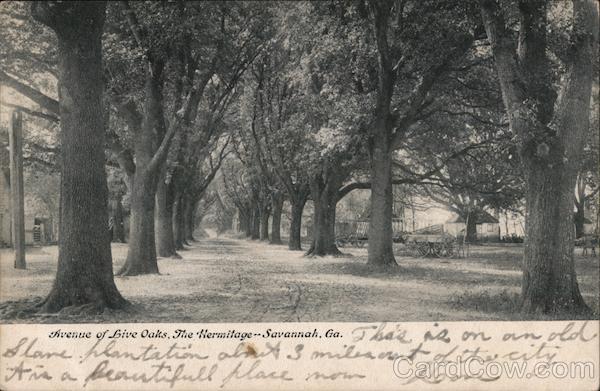 Avenue of Live Oaks, The Hermitage--Savannah, Ga. This is on an old
Slave plantation about 3 miles out of the city
it is a beautifull place now
CardCow.com